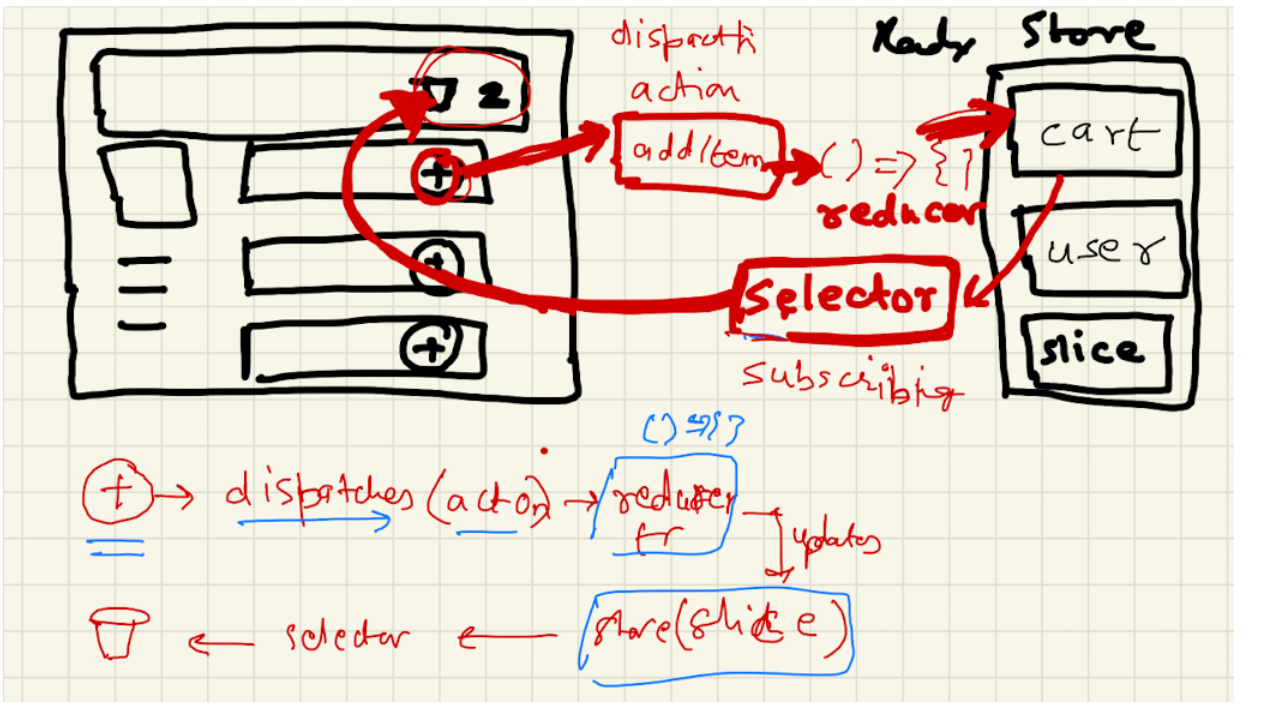 dispatch
action
Redux Store
2
addItem
() => {}
reducer
cart
user
slice
selector
subscribing
+
+
+
() => {}
+ → dispatches (action) → reducer
fr
updates
store (slice)
← selector ←